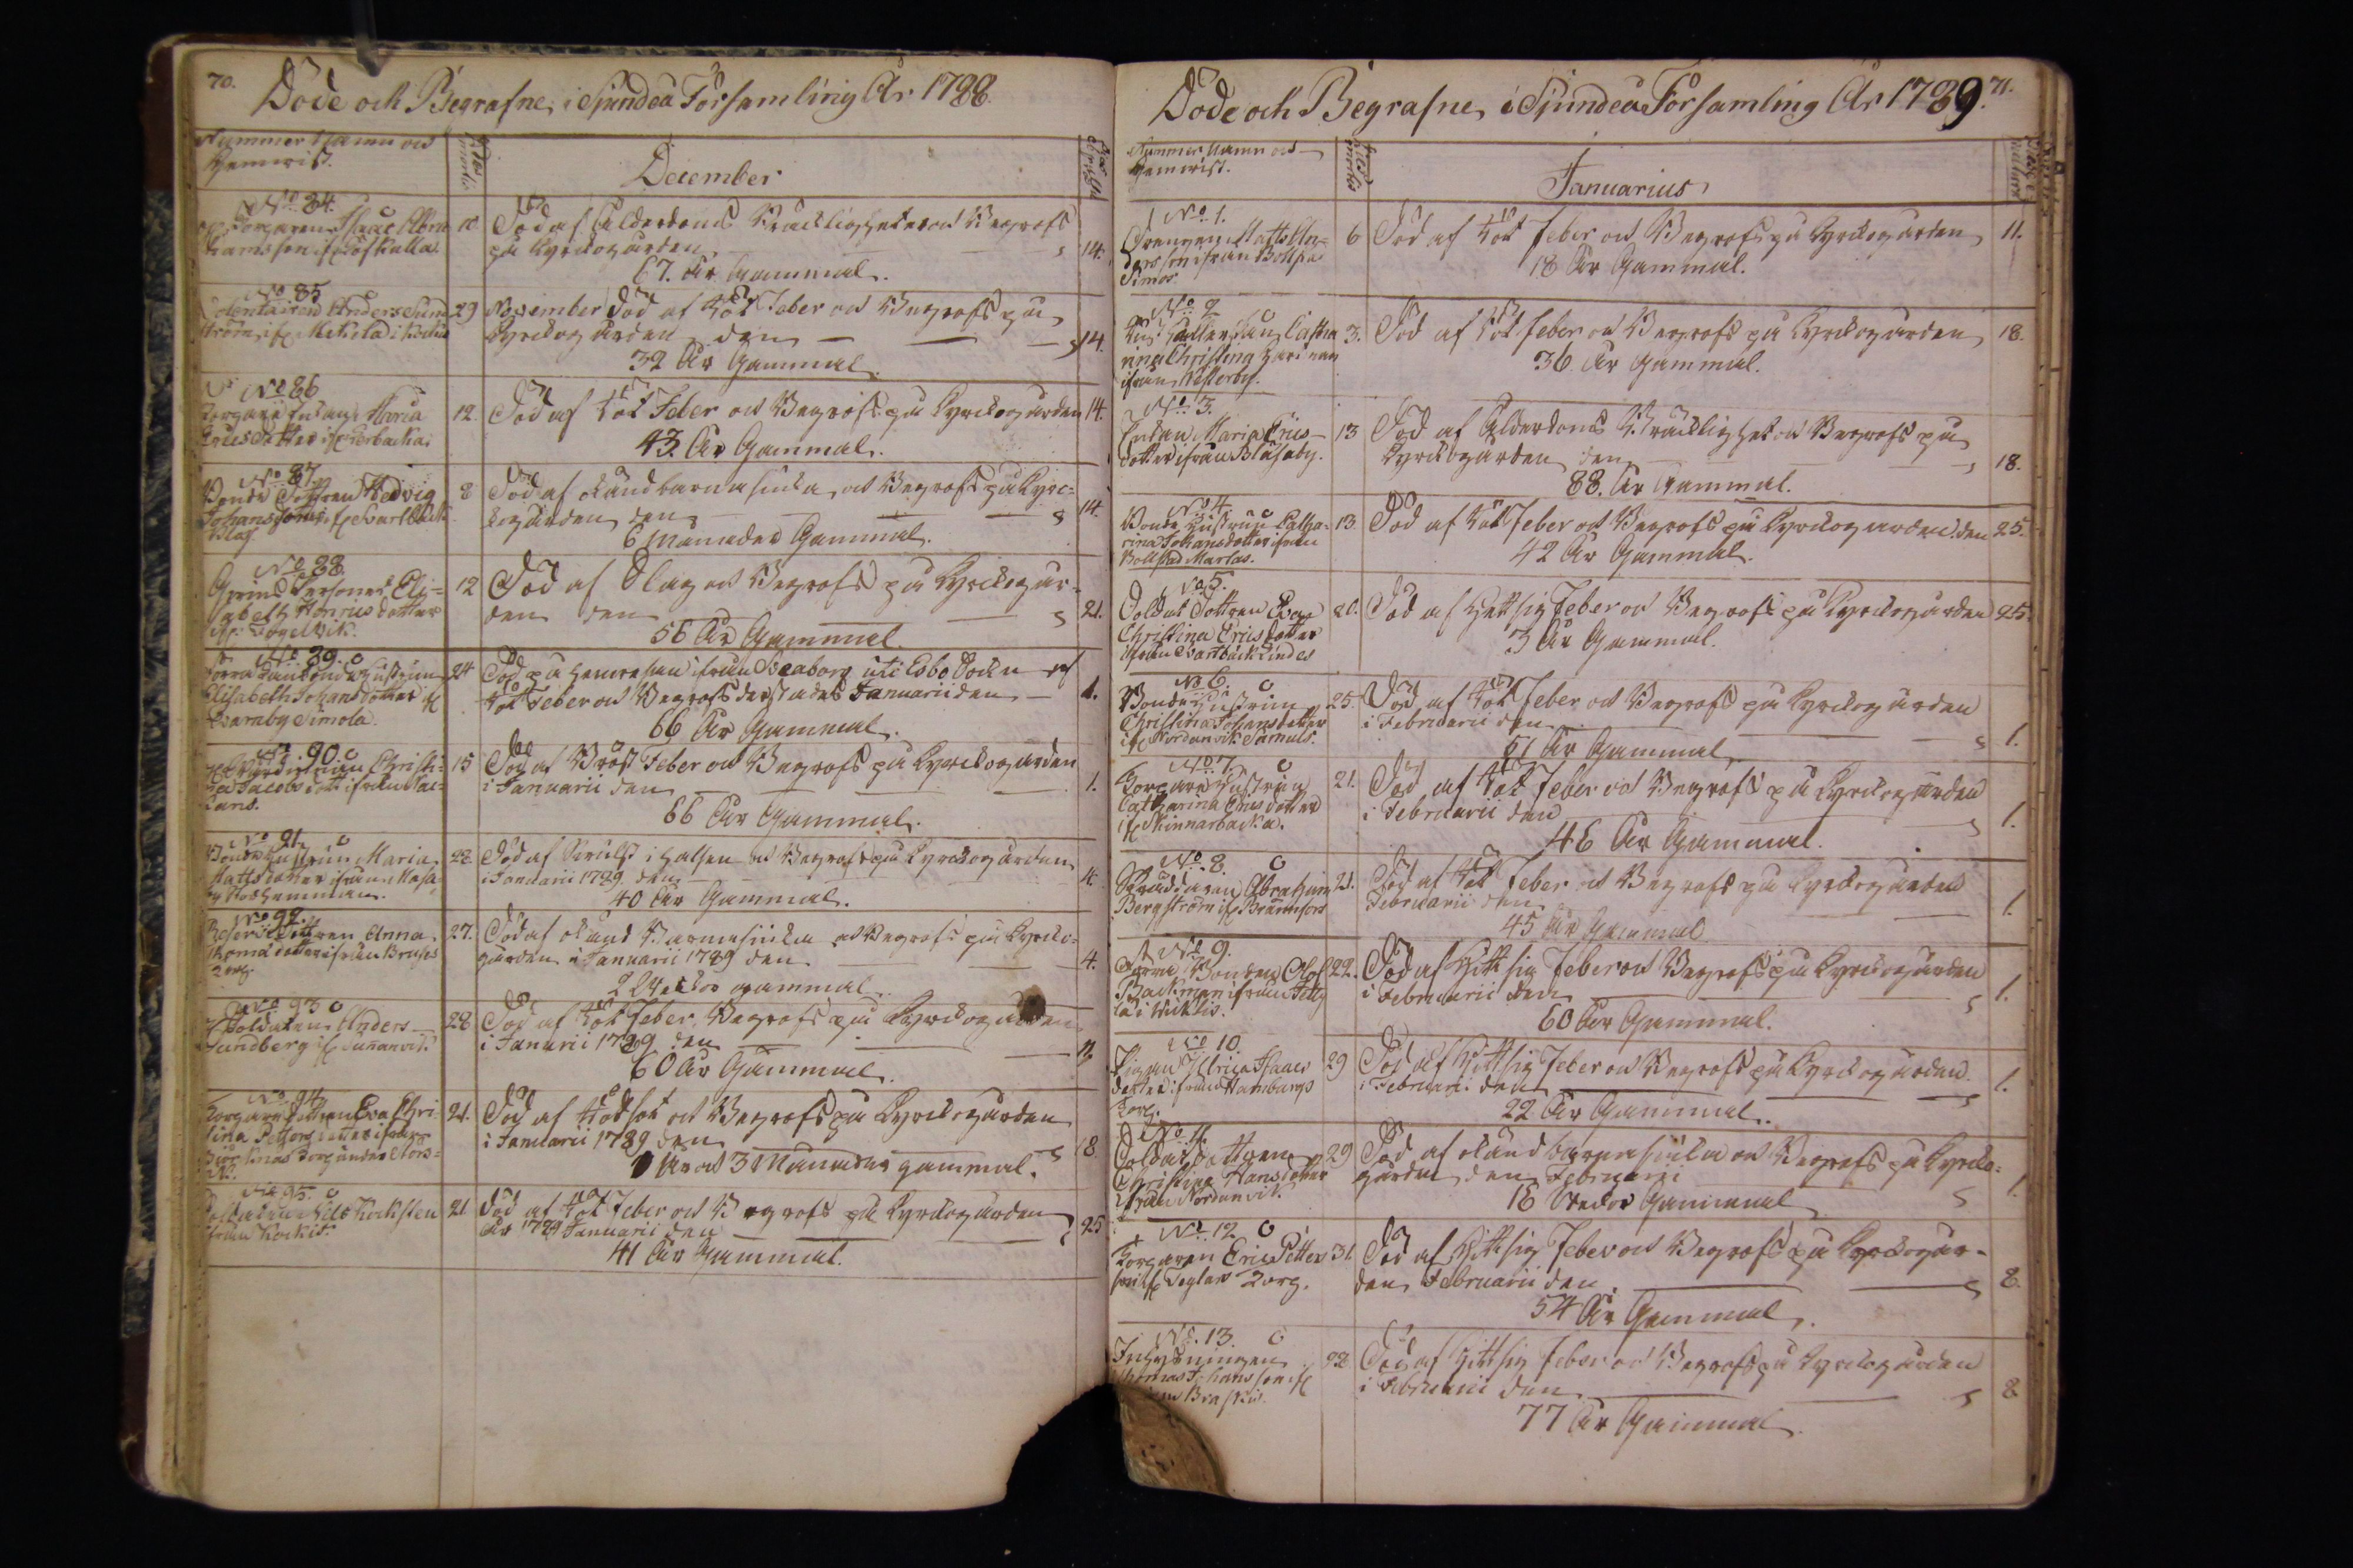 70.
Döde och Begrafne, i Sjundeå Församling År 1788.
Nummer Namn och
Hemvist.
December
No. 84.
Torparen Isaac Abra
hamsson ifr
10
Död af Ålderdoms Bräcklighet och Begrofs
på Kyrckogården
14.
67. År Gammal.
No. 85
Anders Sund
ström, ifr
29
November Död af Röt Feber och Begrofs på
Kyrckogården den
14.
32 År Gammal.
No 86
Torpare Enkan Maria
Ericsdotter ifr
12.
Död af Röt Feber och Begrofs på Kyrckogården
14.
43 År Gammal.
No 87.
Bonde Dottren Hedvig
Johansdotter ifr Svartbäck
8
Död af okänd barnasiuka, och Begrofs på Kyrc-
kogården den
14.
6 Månader Gammal.
No 88.
Eli-
sabeth Henricsdotter
ifr.
12
Död af Slag och Begrofs på Kyrckogår-
den den
21.
56 År Gammal.
No. 89.
Elisabeth Johansdotter ifr
Qvarnby Simola.
24
Död på hemresan ifrån Sveaborg uti Esbo Socken af
Röt Feber och Begrofs derstädes Januarii den
1.
66 År Gammal.
No 90
Christi-
na Jacobsdott ifrån
15
Död af Bröst Feber och Begrofs på Kyrckogården
i Januarii den
1.
66 År Gammal.
No 91.
Bonde Hustrun Maria
Mattsdotter ifrån Masa-
by
28
Död af Svulst i halsen och Begrofs på Kyrckogården
i Januarii 1789 den
4.
40 År Gammal.
No 92.
Dottren Anna
Thomsdotter ifrån
Torp.
27.
Död af okänd Barnasiuka och Begrofs på Kyrcko-
gården i Januarii 1789 den
4.
2 Veckor gammal.
No 93
Soldaten Anders
Sundberg ifr Sunanvik.
28
Död af Röt Feber, Begrofs på Kyrckogården
i Januarii 1789 den
60 År Gammal.
No. 94
Torpare Dottren Eva Chri-
stina Pettersdotter ifrån
21.
Död af Rödsot och Begrofs på Kyrckogården
i Januarii 1789 den
18.
1 År och 3 Månader gammal.
No 95.
Soldaten Nils Kocksten
ifrån Kockis.
21
Död af Röt Feber och Begrofs på Kyrckogården
År 1789 Januarii den
25
41 År Gammal.
71.
Döde och Begrafne i Sjundeå Församling År 1789.
Nummer Namn och
Hemvist.
Januarius
No. 1.
Drengen Matts An-
dersson ifrån Bollsta
Simos
6
Död af Röt feber och Begrofs på Kyrckogården
11.
18 År Gammal.
No 2
Catha
rina Christina
ifrån Vesterby.
3.
Död af Röt feber och Begrofs på Kyrckogården
18.
36 År Gammal.
No. 3.
Enkan Maria Erics-
dotter ifrån Blåsaby.
13
Död af Ålderdoms Bräcklighet och Begrofs på
Kyrckogården den
18.
88. År Gammal.
No 4.
Bonde Hustrun Catha-
rina Johansdotter ifrån
Bollstad Martas.
13.
Död af Röt Feber och Begrofs på Kyrckogården den
25.
42 År Gammal.
No 5.
Soldat Dottren Eva
Christina Ericsdotter
ifrån Svartbäck Lindes
20.
Död af Hettsig Feber och Begrofs på Kyrckogården
25.
3 År Gammal.
No 6.
Bonde Hustrun
Christina Johansdotter
ifr Nordanvik Samuls.
25.
Död af Röt Feber och Begrofs på Kyrckogården
i Februarii den
1.
51 År Gammal
No 7.
Torpare Hustrun
Catharina Ericsdotter
ifr Skinnarbacka.
21.
Död af Röt Feber och Begrofs på Kyrckogården
i Februarii den
1.
46 År Gammal.
No. 8.
Skräddaren Abraham
Bergström ifr Brännfors
21.
Död af Röt Feber och Begrofs på Kyrckogården
Februarii den
1.
45 År Gammal
No 9.
Bonden Olof
Backman ifrån
22.
Död af Hettsig Feber och Begrofs på Kyrckogården
i Februarii den
1.
60 År Gammal.
No 10.
Pigan Ulrica Isaacs
dotter ifrån Hamburgs
Torp.
29
Död af Hettsig Feber och Begrofs på Kyrckogården.
i Februari den
1.
22 År Gammal.
No 11.
Soldat Dottren
Christina Hansdotter
ifrån Nordanvik.
29
Död af okänd barnasiuka och Begrofs på Kyrcko-
gården den Februarii
1.
16 Veckor Gammal
No. 12
Torparen Eric Petters
son ifr Seglars Torp.
31.
Död af Hettsig Feber och Begrofs på Kyrckogår-
den Februarii den
8.
54 År Gammal.
No. 13.
Inhysningen
Thomas Johansson ifr
22
Död af Hettsig feber och Begrofs på Kyrckogården
i Februarii den
8
77 År Gammal